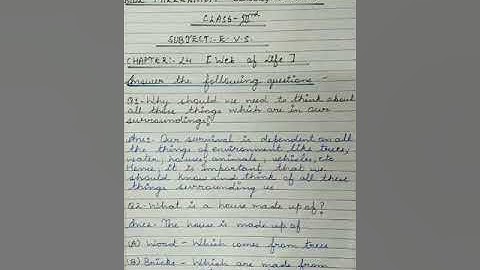 CLASS - IIIrd
SUBJECT:- E.V.S.
CHAPTER:- 24 [ Web of life ]
Answer the following questions -
Q1- Why should we need to think about
all these things which are in our
surroundings?
Ans:- Our survival is dependent on all
the things of environment like trees,
water, houses, animals, vehicles, etc
Hence, it is important that we
should know and think of all these
things surrounding us
Q2- What is a house made up of?
Ans:- The house is made up of
(A) Wood - Which comes from trees
(B) Bricks - Which are made from